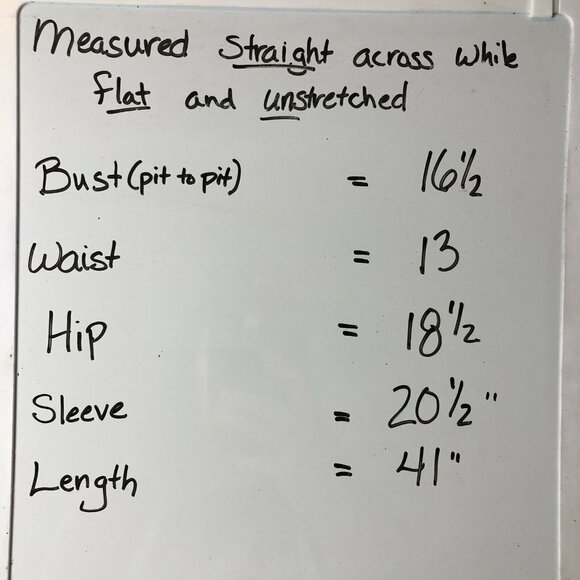 Measured Straight across while
flat and unstretched
Bust (pit to pit) = 16 1/2
Waist = 13
Hip = 18 1/2
Sleeve = 20 1/2"
Length = 41"